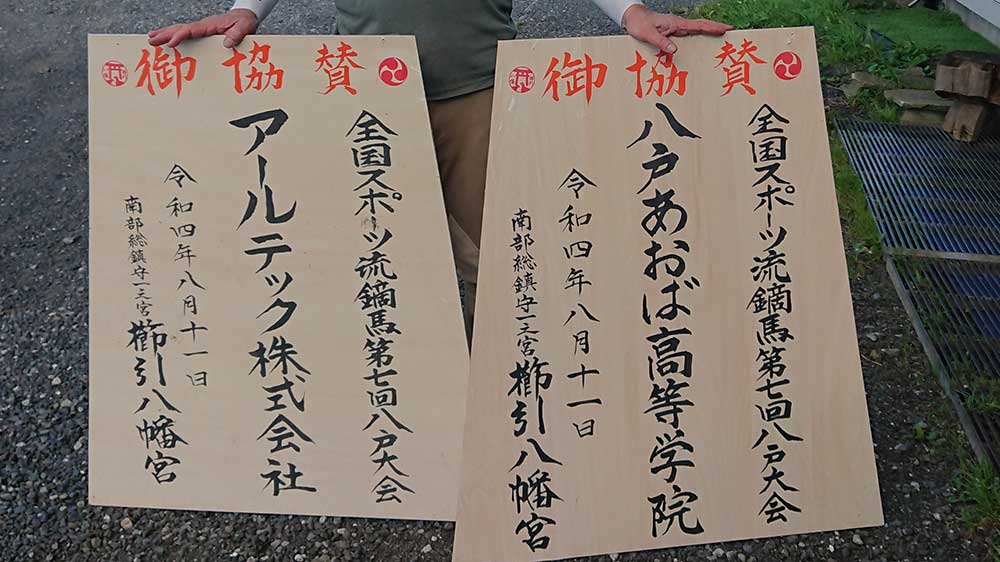 御協賛
全国スポーツ流鏑馬第七回八戸大会
アールテック株式会社
令和四年八月十一日
南部総鎮守一之宮 櫛引八幡宮
御協賛
全国スポーツ流鏑馬第七回八戸大会
八戸あおば高等学院
令和四年八月十一日
南部総鎮守一之宮 櫛引八幡宮